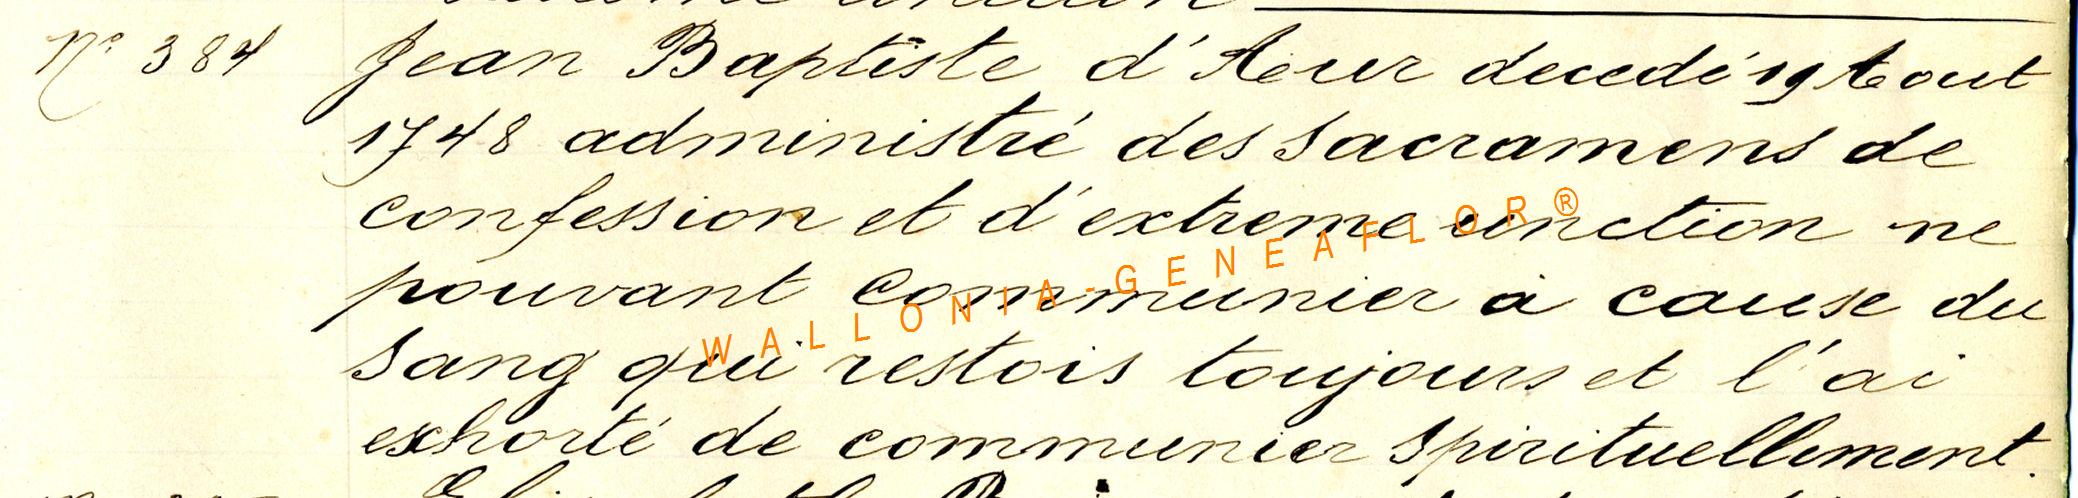 N° 384 Jean Baptiste d'Heur decedé 19 Aout
1748 administré des sacramens de
confession et d'extreme onction ne
pouvant communier a cause du
sang qui restois toujours et l'ai
exhorté de communier spirituellement.
WALLONIA-GENEAFLOR®